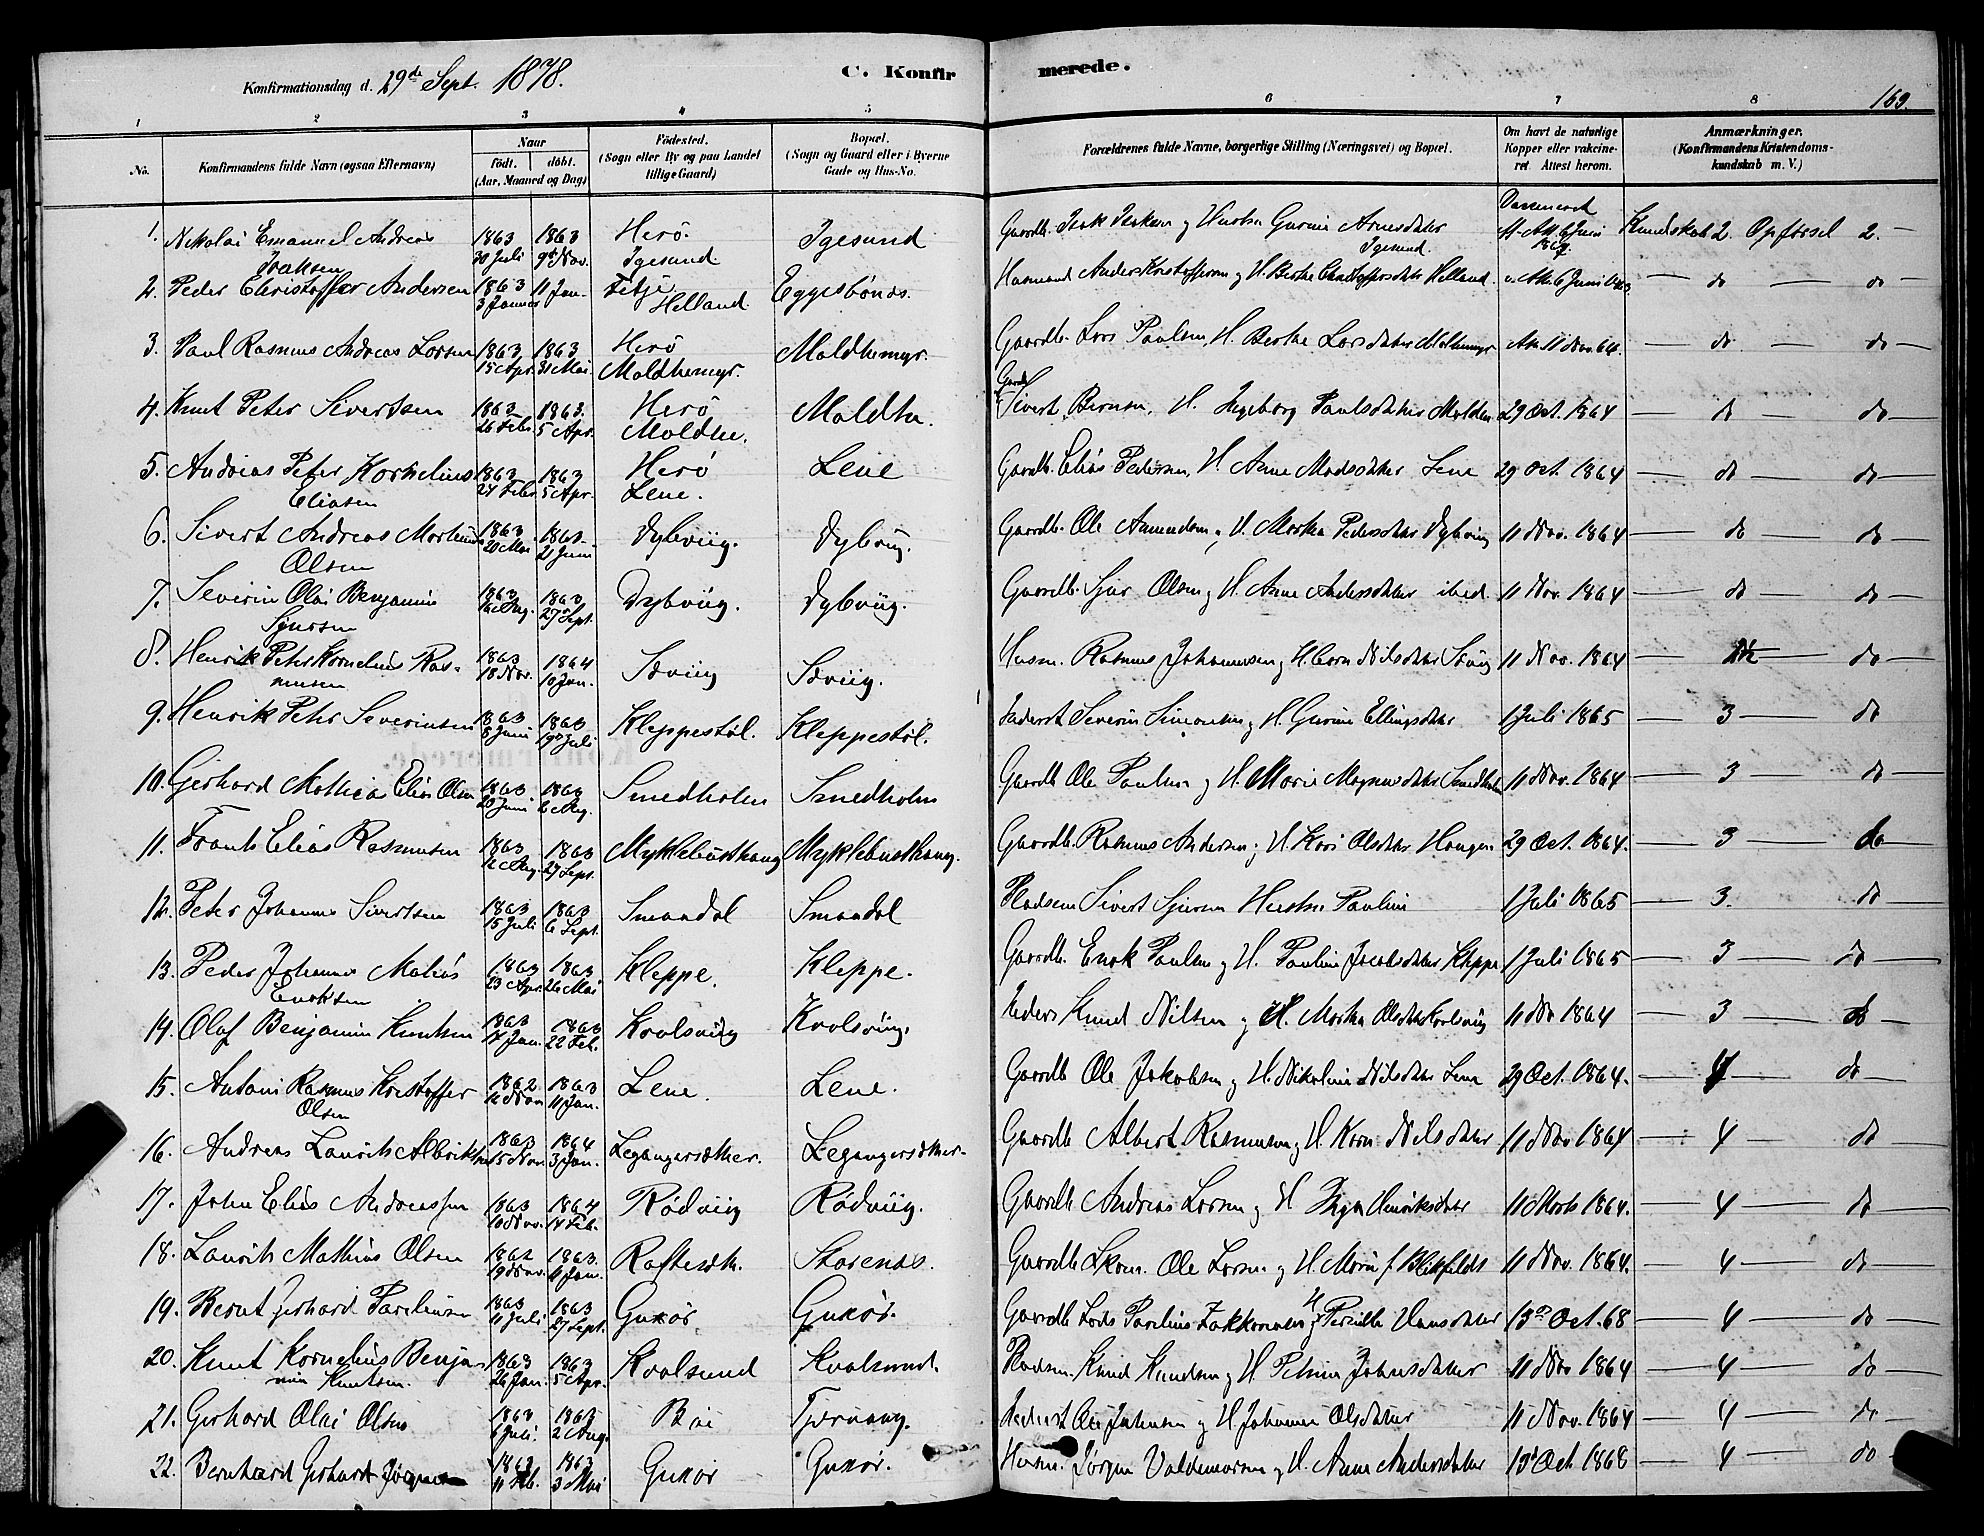 Konfirmationsdag d. 29de Sept. 1878.
C. Konfir
merede.
169.
1 2 3 4 5 6 7 8
No.
Konfirmandens fulde Navn (ogsaa Efternavn)
Naar
født. døbt.
(Aar, Maaned og Dag)
Fødested.
(Sogn eller By og paa Landet
tillige Gaard)
Bopæl.
(Sogn og Gaard eller i Byerne
Gade og Hus-No.
Forældrenes fulde Navne, borgerlige Stilling (Næringsvei) og Bopæl.
Om havt de naturlige
Kopper eller vakcine-
ret Attest herom.
Anmærkninger.
(Konfirmandens Kristendoms-
kundskab m. V.)
1. Nikolai Emanuel Andreas Isaksen 1863 30 Juli 1863 9de Nov. Herø. Igesund Igesund Gaardb. Isak Isaksen og Hustru Gurine Arnesdatter Igesund. Kundskab 2. Opførsel 2.
2. Peder Christoffer Andersen 1863 3 Januar 11 Jan. Helland Eggesbønes. Husmand Anders Kristoffersen og H. Berthe Christoffersdatter Helland do do
3. Paul Rasmus Andreas Larsen 1863 15 Apr. 1863 31 Mai. Herø Moldhemyr. Moldhemyr. Gaardb. Lars Paulsen H. Berthe Larsdatter Moldhemyr 11 Nov. 64. do do
4. Knut Peter Sivertsen 1863 26 Febr 1863. 5 Apr. Herø Moldhe. Gaardb Sivert H. Ingeborg Paulsdatter 29 Oct. 1864 do do
5. Andreas Peter Kornelius Eliasen 1863 24 Febr 1863 5 Apr. Herø Lene. Lene Gaardb. Elias Pedersen, H. Anne Madsdatter Lene 29 Oct. 1864 do do
6. Sivert Andreas Martinus Olsen 1863 20 Mai 1863. 21 Juni Dybviig. Dybviig. Gaardb. Ole Amundsen og H. Martha Pedersdatter Dybviig 11 Nov. 1864 do do
7. Severin Olai Benjamin Sjursen 1863 16 Aug. 1863 27 Sept. Dybviig. Dybviig. Gaardb. Sjur Olsen og H. Anne Andersdatter ibid 11 Nov. 1864 do do
8. Henrik Peter Kornelius Ras- musen 1863 18 Nov. 1864 10 Jan. Sæviig Sæviig. Husm. Rasmus Johannesen og H. Nilsdatter Sæviig 11 Nov. 1864 do
9. Henrik Peter Severinsen 1863 8 Juni 1863 19de Juli Kleppestøl. Kleppestøl. Inderst Severin Simonsen og H. Gurine Ellingsdatter 1 Juli 1865 3 do
10. Gerhard Mathias Elias Olsen 1863 20 Juni 1863 Aug. Smedholm Smedholm Gaardb Ole Paulsen og H. Marie Magnusdatter Smedholm 11 Nov. 1864 3 do
11. Frants Elias Rasmusen 1863 12 Aug. 1863 27 Sept. Myklebusthaug Myklebusthaug. Gaardb. Rasmus Andersen og H. Kari Olsdatter Haugen 29 Oct. 1864. 3 do
12. Peter Johannes Sivertsen 1863 15 Juli 1863 6 Sept. Smaadal Smaadal Pladsm Sivert Sjursen Hustru Pauline 1 Juli 1865 3. do
13. Peder Johannes Matias Enoksen 1863 23 Apr. 1863 26 Mai Kleppe. Kleppe. Gaardb. Enok Paulsen og H. Pauline Jacobsdatter Kleppe 1 Juli 1865 3 do
14. Olaf Benjamin Knutsen 1863 17 Jan. 1863 22 Feb. Kvalsviig Kvalsviig. Knud Nilsen og H. Martha Olsdatter Kvalsviig 11 Nov 1864 3 do
15. Antoni Rasmus Kristoffer Olsen 1862 Nov 1863 11 Jan. Lene. Lene. Gaardb Ole Jakobsen og H. Nikoline Nilsdatter Lene 29 Oct. 1864. 4 do
16. Andreas Laurits Albriktsen 1863 15 Nov. 1864 3 Jan. Legangersæther. Legangersæther. Gaardb Albert Rasmusen og H. Nilsdatter 11 Nov 1864 4 do
17. John Elias Andreassen 1863 10 Nov. 1864 14 Feb. Rødviig Rødviig. Gaardb Andreas Larsen og H Henriksdatter 11 Marts 1864. 4 do
18. Laurits Mathias Olsen 1862 19 Nov. 1863. 11 Jan. Storenæs. Gaardb Ole Larsen og H. f. 11 Nov. 1864. 4 do
19. Bernt Gerhard 1863 11 Juli 1863 27 Sept. Gurør Gurør. Gaardb Pernille Hansdatter 13 Oct. 68 4 do
20. Knut Kornelius Benja- min Knutsen. 1863 26 Jan. 1863 5 Apr. Kvalsund Kvalsund. Pladsm. Knud Knudsen og H. Johnsdatter 11 Nov 1864 4 do
21. Gerhard Olai Olsen 1863 6 Juli. 1863 2 Aug. Bøe Ole Johnsen og H. Johanne Olsdatter 11 Nov. 1864 4 do
22. Bernhard Gerhard Jørgensen 1863 11 Feb. 1863 3 Mai Gurør Gurør. Husm. Jørgen Valdemarsen og H. Anne Andersdatter 13 Oct. 1868 4 do